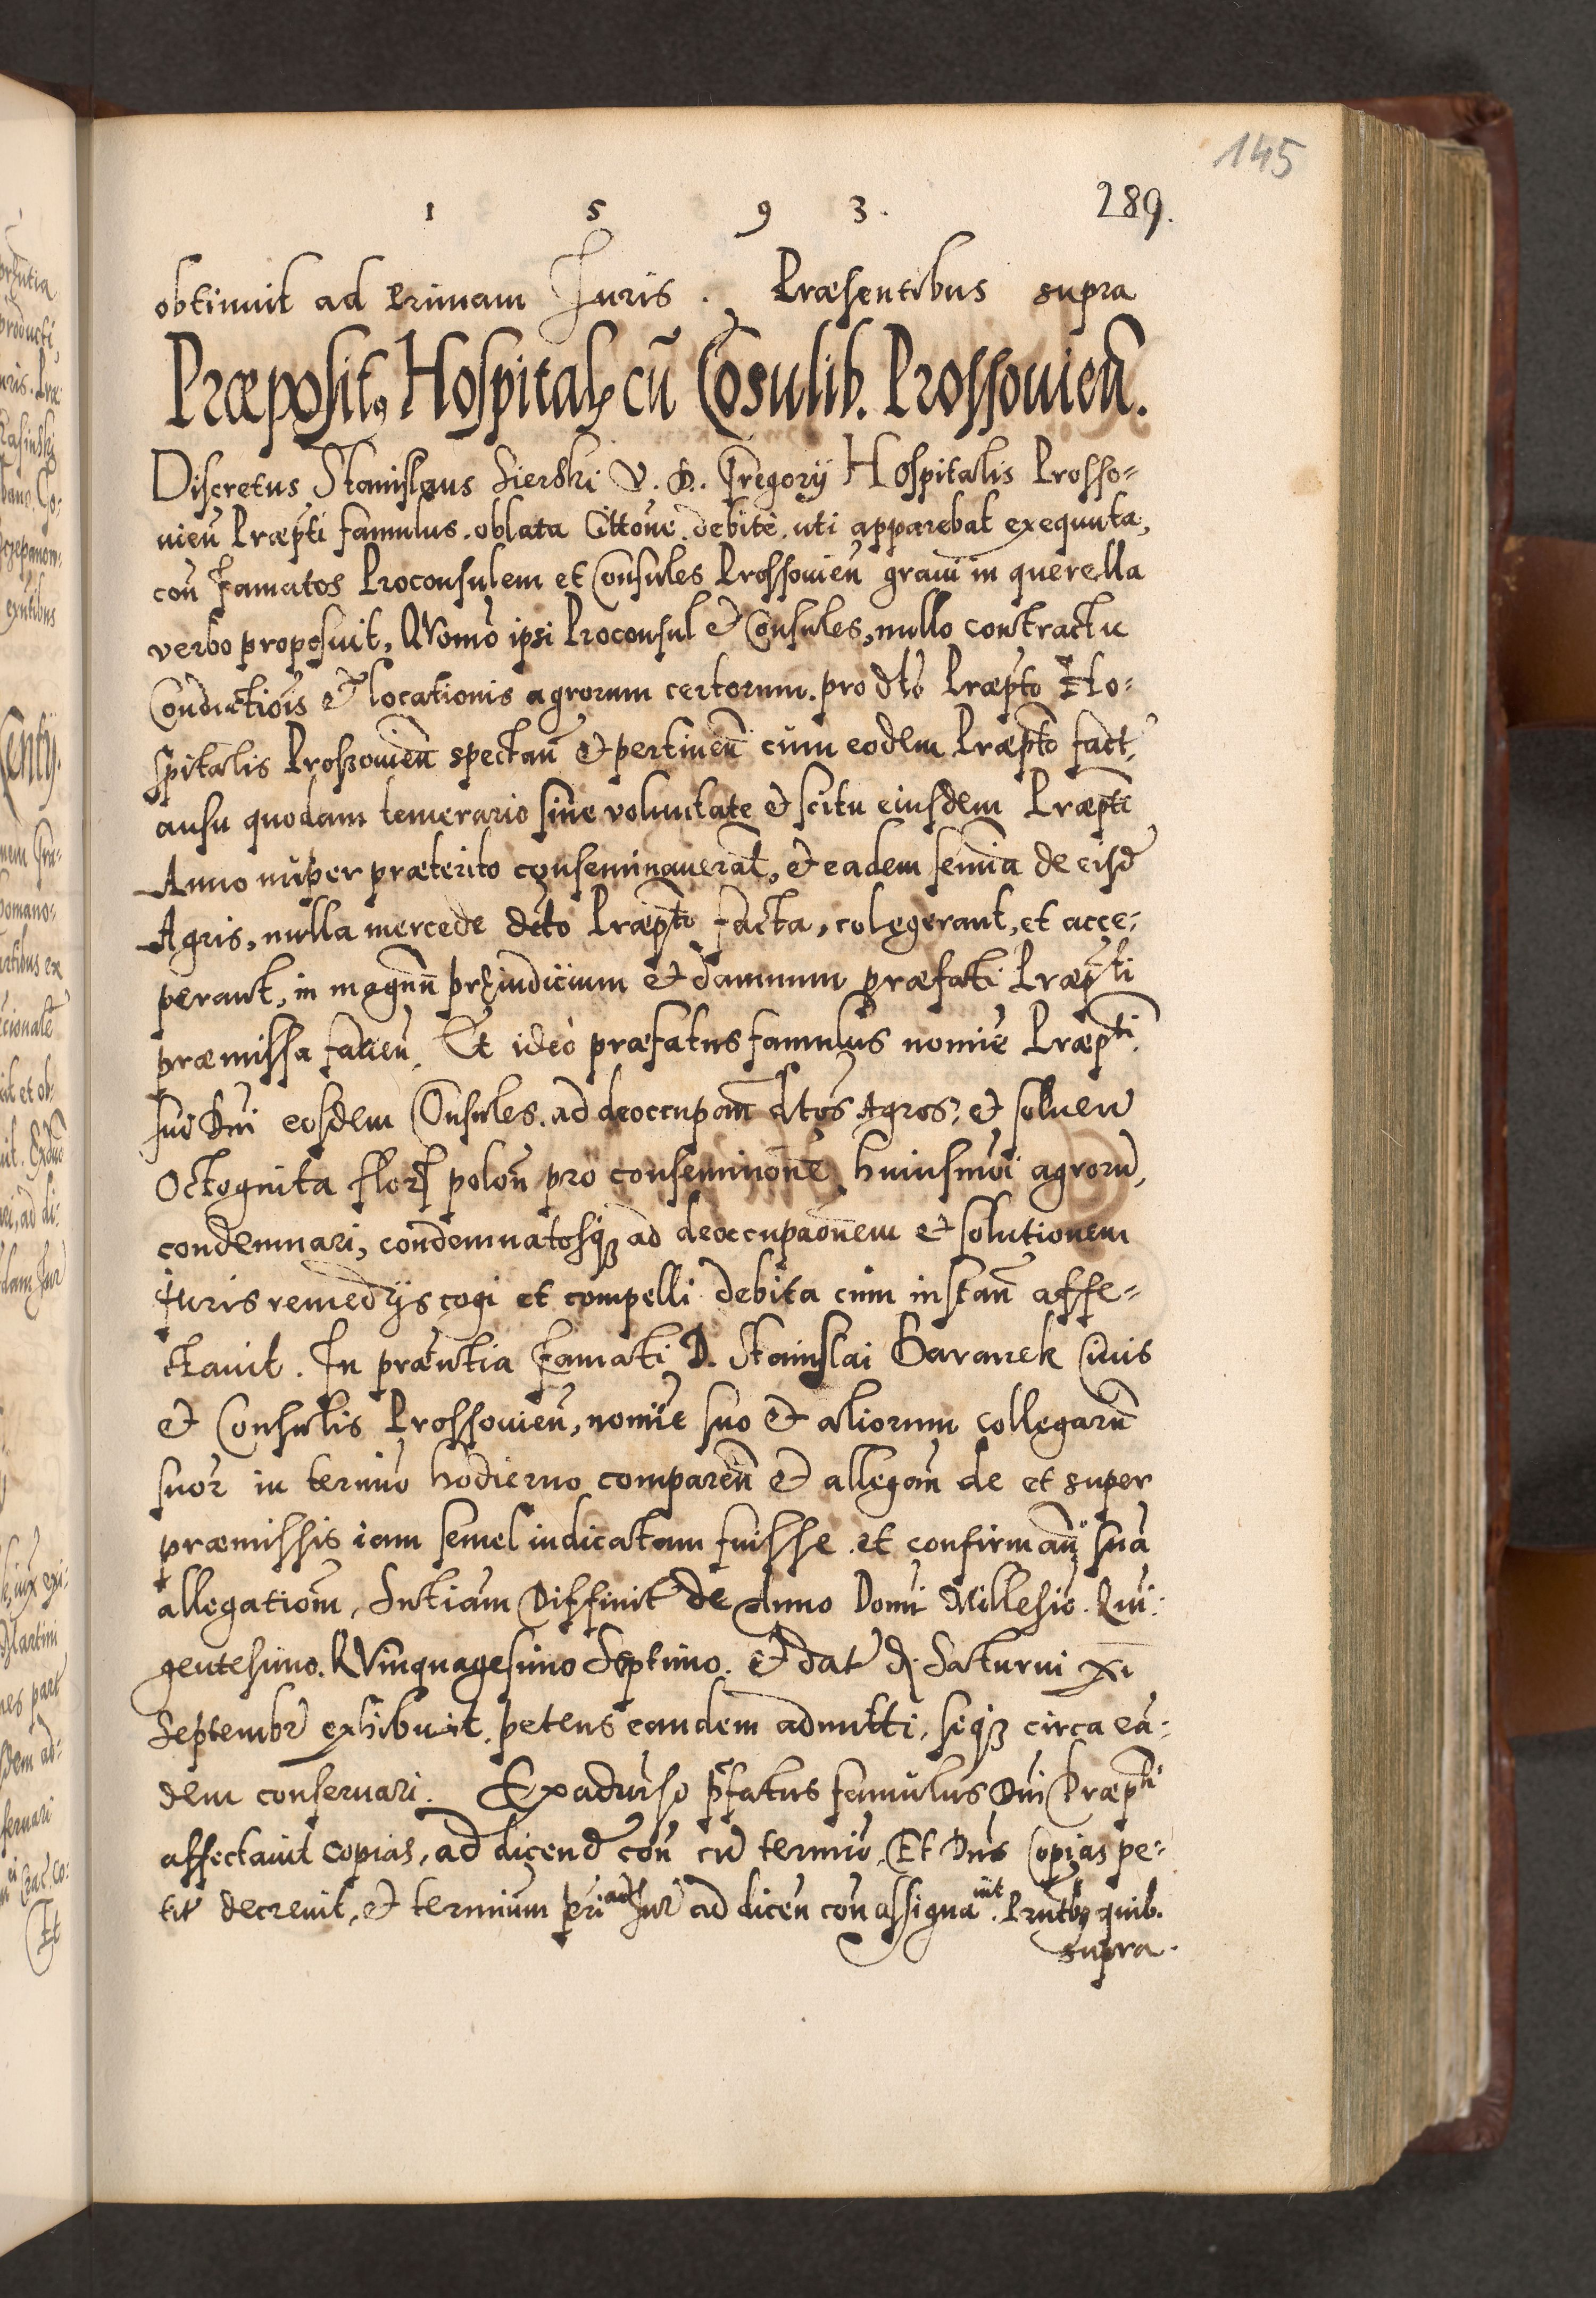 145
1 5 9 3. 289.
obtinuit ad Primam Iuris. Præsentibus supra
Præposit9 Hospital cũ Cõsulib. Prossovien̄.
Discretus Stanislaus Sierski V. D. Gregorij Hospitalis Prosso-
uien̄ Præpti famulus. oblata Cittone. debitè uti apparebat exequuta,
con̄ Famatos Proconsulem et Consules Prossouien̄ graui in querella
verbo proposuit, QVomo ipsi Proconsul & Consules, nullo contractu
Conductiois & locationis agrorum certorum. pro dto Præpto Ho-
spitalis Proszouien̄ spectan̄ & pertinen̄ cum eodem Præpto fact,
ausu quodam temerario sine voluntate & scitu eiusdem Præpti
Anno nuper præterito conseminauerat, & eadem semina de eisd
Agris, nulla mercede dcto Præpto facta, colegerant, et acce-
perant, in magnū pręiudicium & damnum præfati Præpti
præmissa facien̄. Et ideò præfatus famulus nomie Præpti
sui Dni eosdem Consules. ad deoccupan̄ dtos Agros, & soluen
Octoginta flor polon̄ pro conseminone huiusmoi agrorū,
condemnari, condemnatosq3 ad deoccupaonem & solutionem
iuris remedijs cogi et compelli debita cum instan̄ affe-
ctauit. In præntia Famati D. Stanislai Baranek Ciuis
& Consulis Prossouien̄, nomie suo & aliorum collegarū
suor in termino hodierno comparen̄ & allegan̄ de et super
præmissis iam semel iudicatam fuisse et confirman̄ sua
allegationem, Sntiam Diffinit de Anno Domi Millesio. Qui-
gentesimo. QVinquagesimo Septimo. & dat d. Saturni xi
Septembr exhibuit. petens eandem admitti, seq3 circa ea-
dem conseruari. Ex aduerso pfatus famulus Dni Præpti
affectauit copias, ad dicend con̄ cu termio, Et Dns Copias pe-
tit decreuit, & terminum pri ad Iur ad dicen̄ con̄ assignauit. Prntb9 quib.
supra.